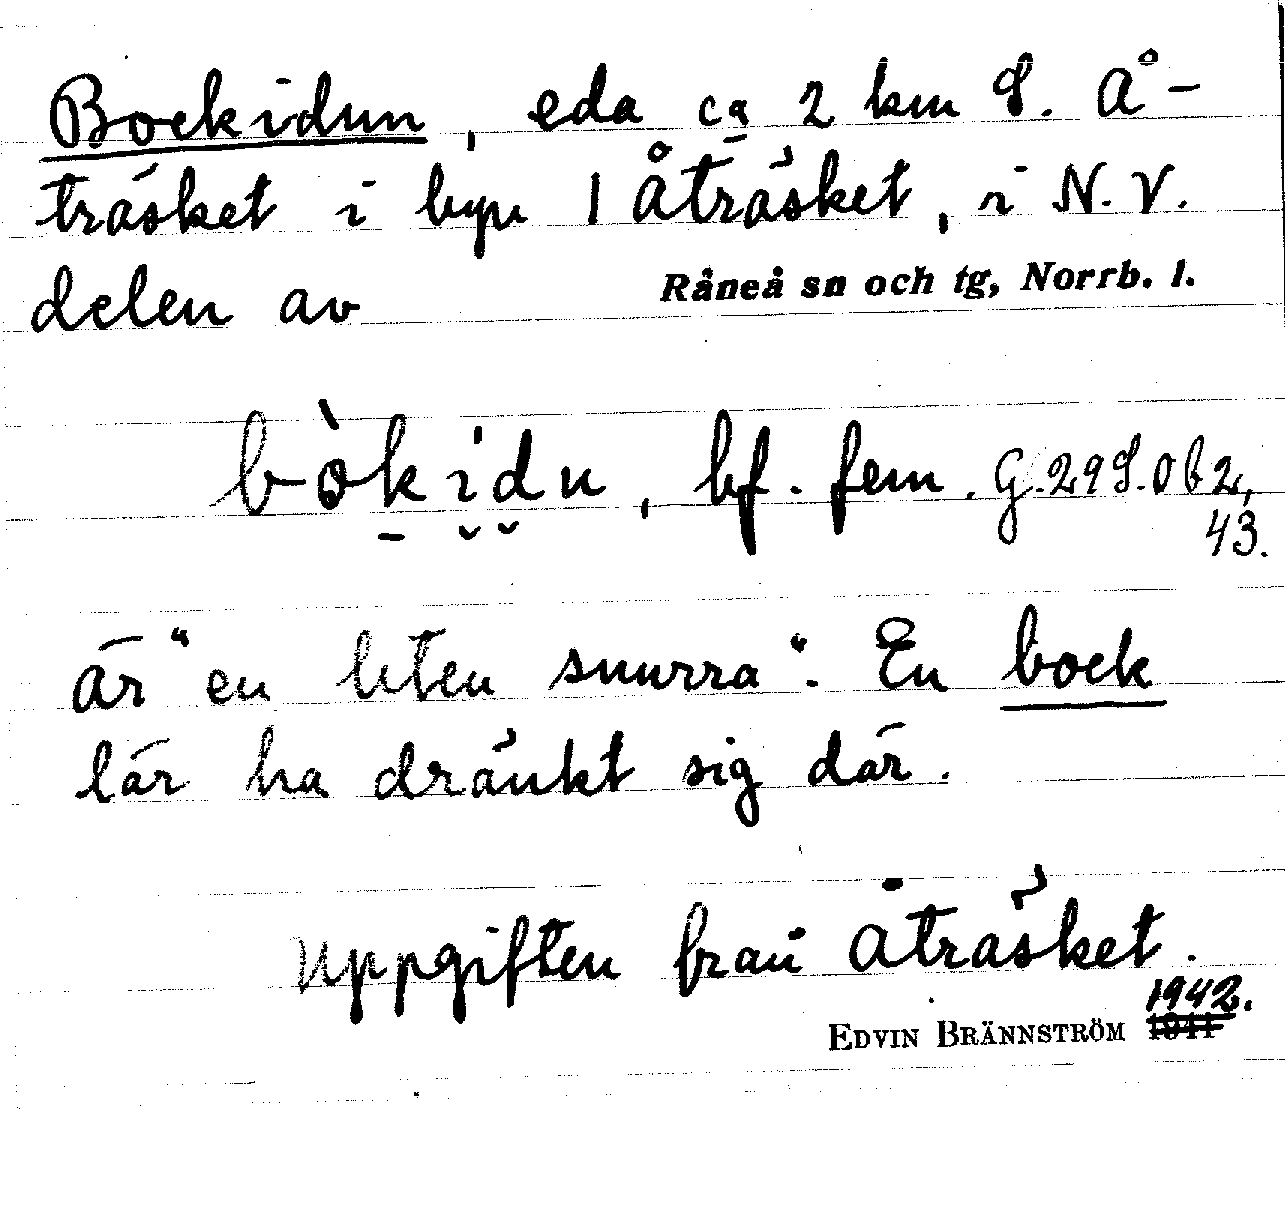 Bockidun, eda ca 2 km S. Å-
träsket i byn 1 Åträsket, i N.V.
delen av Råneå sn och tg, Norrb. l.
bòkidu, bf. fem. G.29S.Ob2,
43.
är "en liten snurra". En bock
lär ha dränkt sig där.
Uppgiften från Åträsket.
EDVIN BRÄNNSTRÖM 1942.